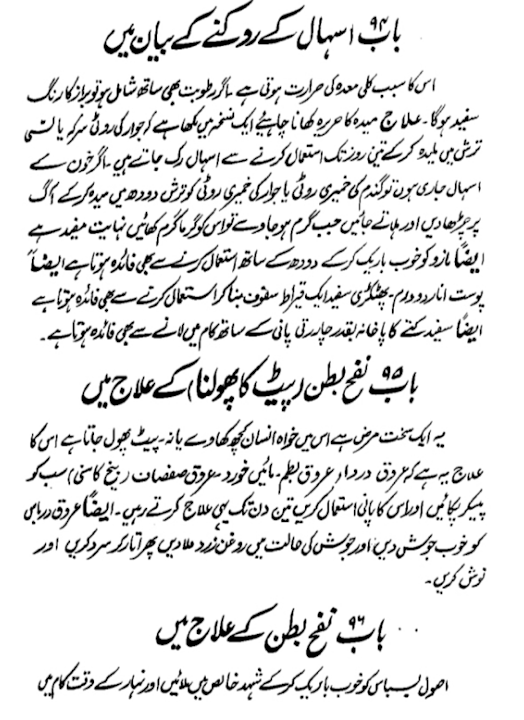 باب ۹۴ اسہال کے روکنے کے بیان میں
اس کا سبب کلی معدہ کی حرارت ہوتی ہے ۔ اگر رطوبت بھی ساتھ شامل ہو تو براز کا رنگ
سفید ہوگا ۔ علاج میدہ کا حریرہ کھانا چاہئیے ایک نسخہ میں لکھا ہے کہ جوار کی روٹی سرکہ یا لسّی
ترش میں ملیدہ کرکے تین روز تک استعمال کرنے سے اسہال رک جاتے ہیں ۔ اگر خون کے
اسہال جاری ہوں تو گندم کی خمیری روٹی یا جوار کی خمیری روٹی کو ترش دودھ میں میدہ کرکے آگ
پر چڑھا دیں اور ہلاتے جائیں جب گرم ہوجاوے تو اس کو گرما گرم کھائیں نہایت مفید ہے
ایضًا مازو کو خوب باریک کرکے دودھ کے ساتھ استعمال کرنے سے بھی فائدہ ہوتا ہے ایضًا
پوست انار دو درم ۔ پھٹکڑی سفید ایک قیراط سفوف بنا کر استعمال کرتے سے بھی فائدہ ہوتا ہے
ایضًا سفید کتے کا پاخانہ بقدر چار رتی پانی کے ساتھ کام میں لانے سے بھی فائدہ ہوتا ہے ۔
باب ۹۵ نفخ بطن (پیٹ کا پھولنا) کے علاج میں
یہ ایک سخت مرض ہے اس میں خواہ انسان کچھ کھاوے یا نہ ۔ پیٹ پھول جاتا ہے اس کا
علاج یہ ہے کہ عروق دردار (عروق بطم ۔ مائیں خورد ۔ عروق صفصات (بیخ کاسنی) سب کو
پیسکر پکائیں اور اس کا پانی استعمال کریں تین دن تک یہی علاج کرتے رہیں ۔ ایضًا عروق
کو خوب جوش دیں اور جوش کی حالت میں روغن زرد ملادیں پھر اتار کر سرد کریں اور
نوش کریں ۔
باب ۹۶ نفخ بطن کے علاج میں
اصول لسباس کو خوب باریک کرکے شہد خالص میں ملائیں اور نہار کے وقت کام میں